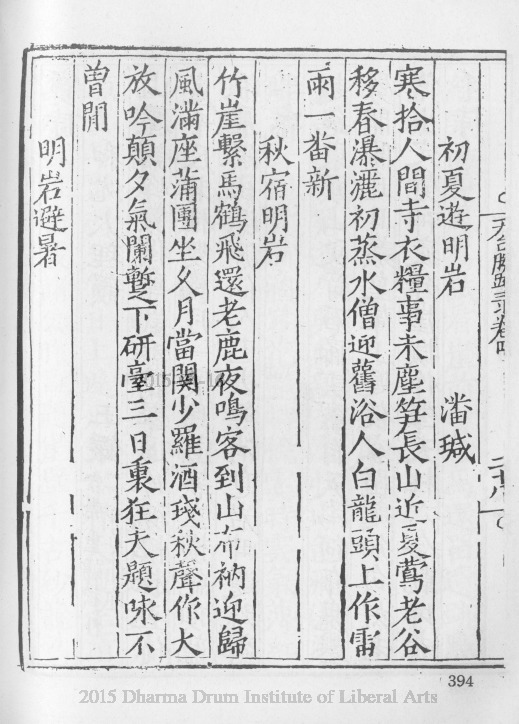 天台勝蹟录卷四　二十八
初夏遊明岩　潘瑊
寒拾人間寺衣糧事未塵笋長山近夏鶯老谷
移春瀑灑初蒸水僧迎舊浴人白龍頭上作雷
雨一畨新
秋宿明岩
竹崖繫馬鶴飛還老鹿夜鳴客到山布衲迎歸
風滿座蒲團坐久月當関少羅酒琖秋聲作大
放吟顛夕氣闌蹔下研臺三日裏狂夫題咏不
曾閒
明岩避暑
394
2015 Dharma Drum Institute of Liberal Arts